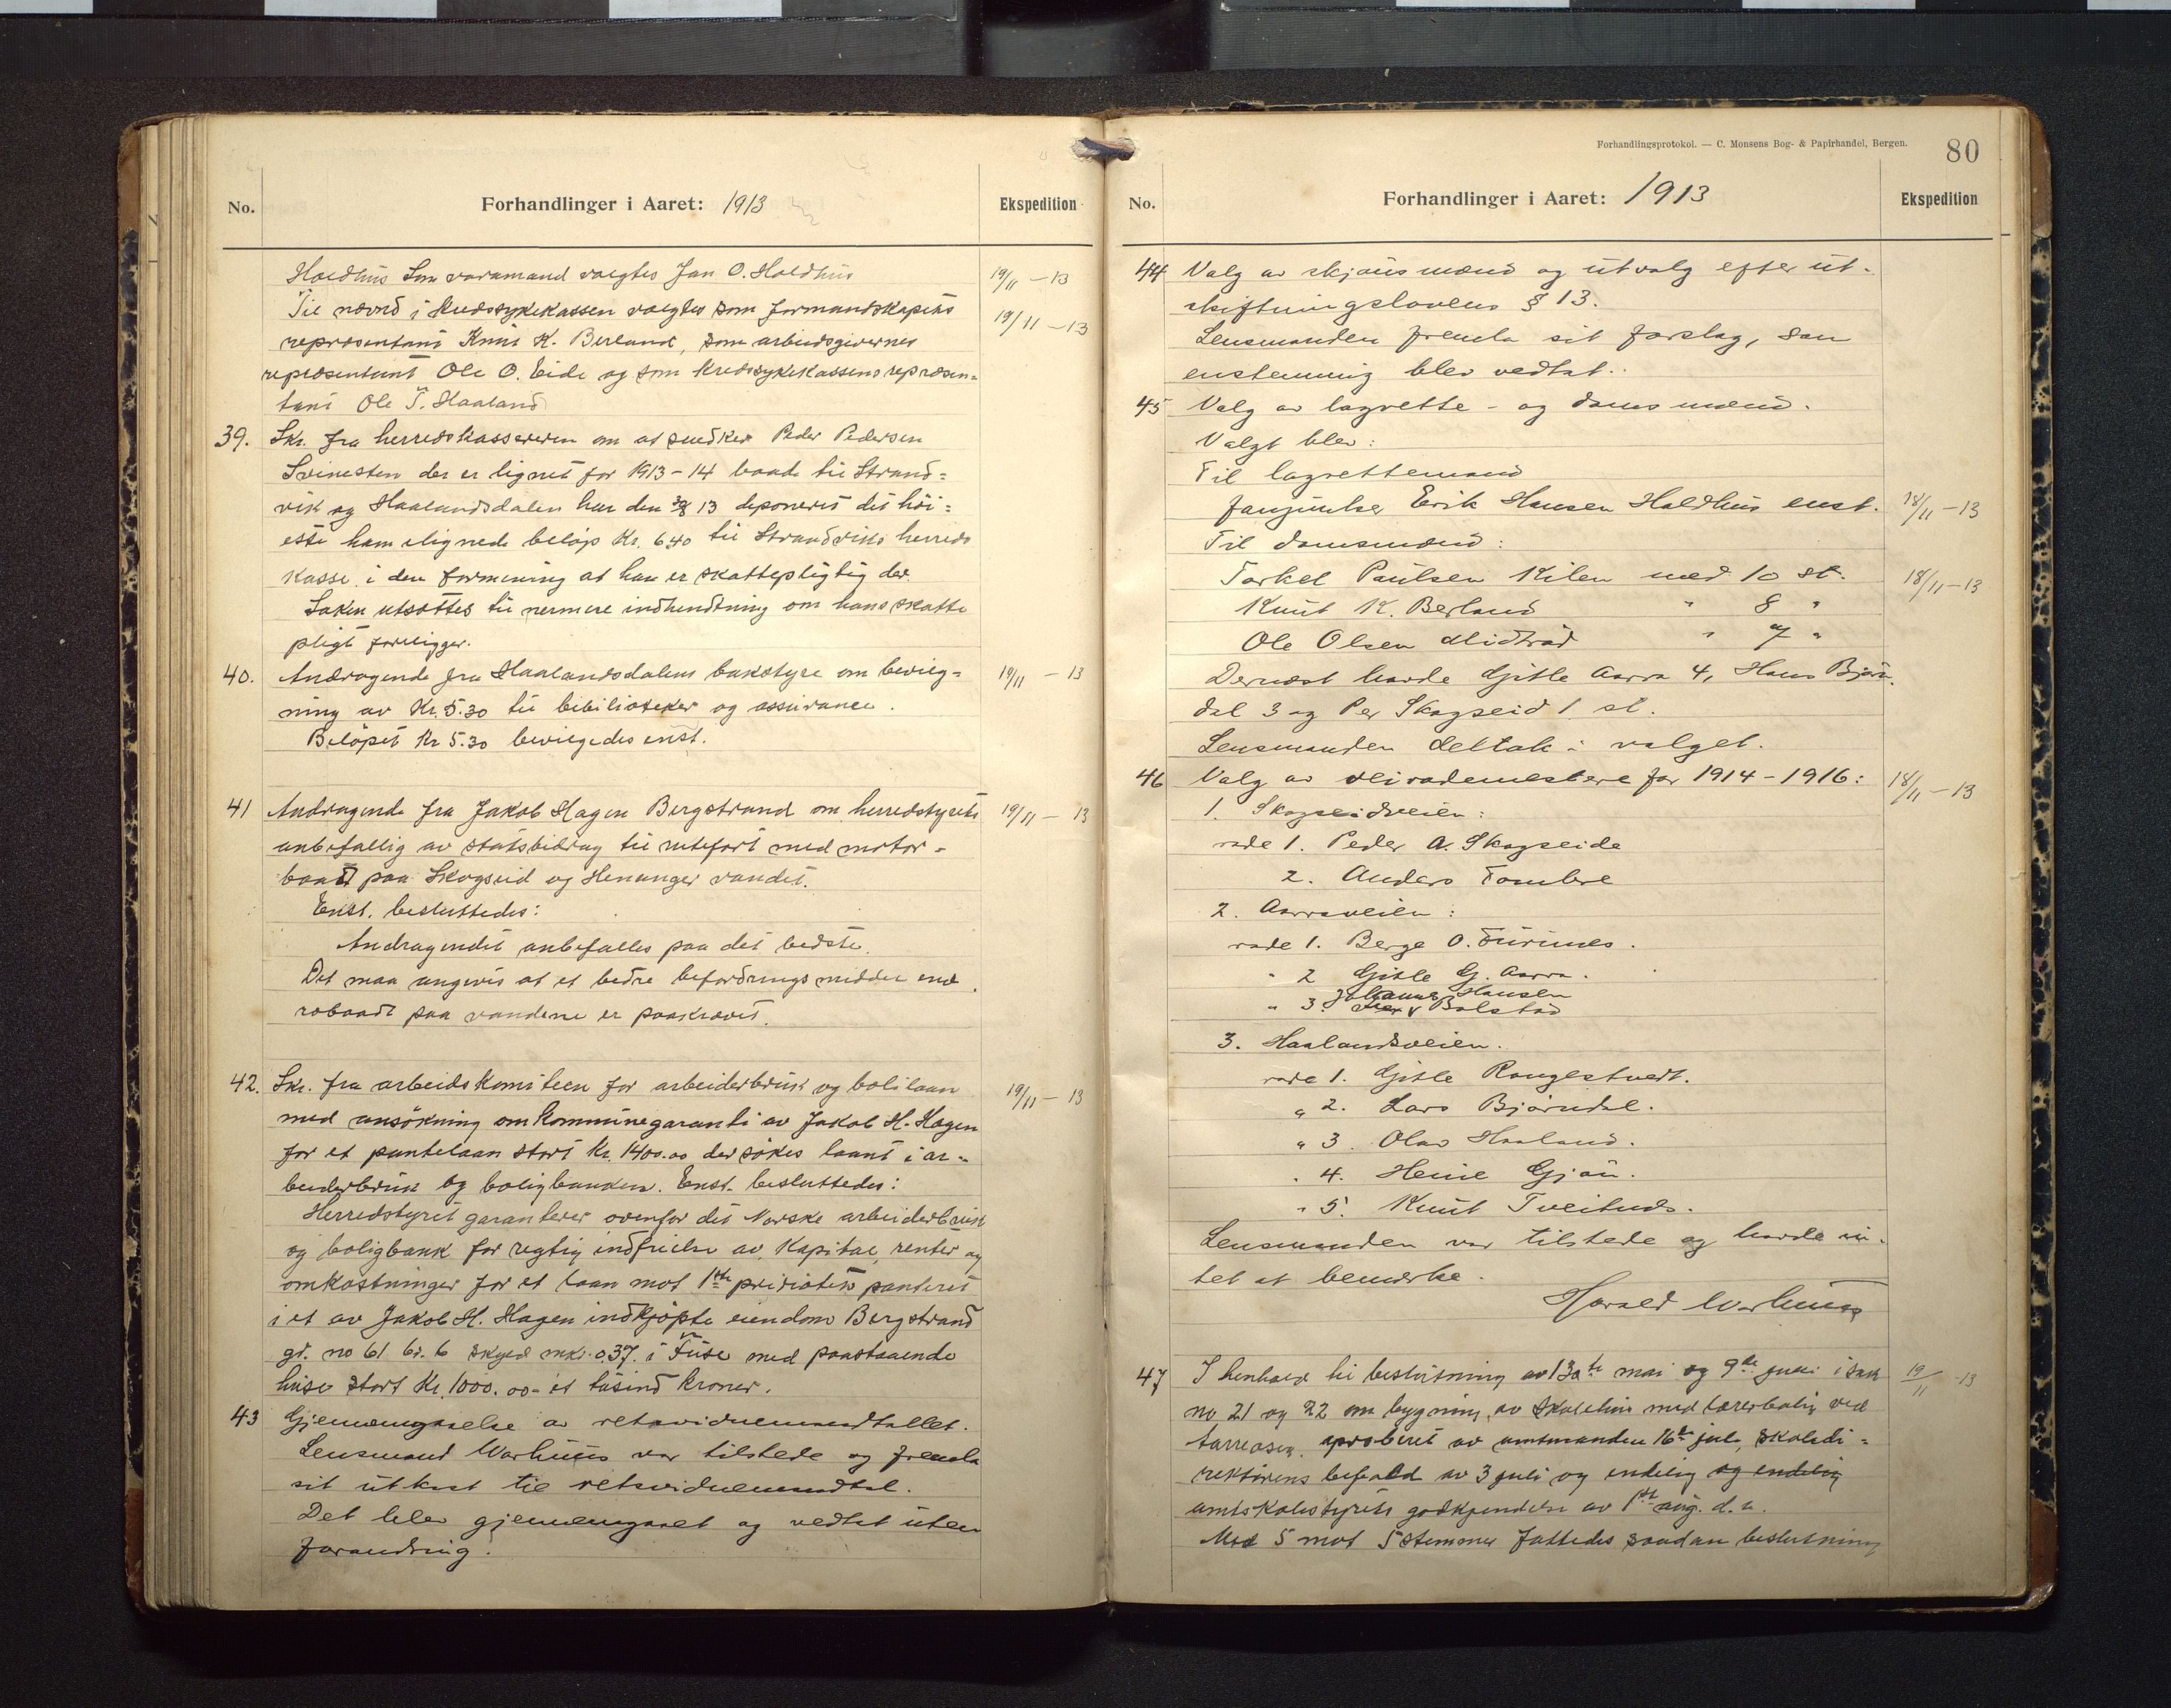 No.
Forhandlinger i Aaret: 1913
Ekspedition
Holdhus Som varamand valgtes Jan O. Holdhus
19/11 - 13
Til nævnd i kredssykekassen valgtes som formandskapets
19/11 - 13
repræsentant Knut K. Berland, som arbeidsgivernes
repræsentant Ole O. Eide og som kredssykekassens repræsen=
tant Ole T. Haaland
39. Skr. fra herredskassereren om at snedker Peder Pedersen
Svinesten der er lignet for 1913-14 baade til Strand=
vik og Haalandsdalen har den 3/8 13 deponeret det høi=
este ham ilignede beløp Kr. 6.40 til Strandviks herreds
kasse i den formening at han er skattepligtig der.
Saken utsættes til nermere indhendtning om hans skatte
pligt foreligger.
40. Andragende fra Haalandsdalens bokstyre om bevilg=
19/11 - 13
ning av Kr. 5.30 til bibilioteker og assurance.
Beløpet Kr 5.30 bevilgedes enst.
41 Andragende fra Jakob Hagen Bergstrand om herredstyrets
19/11 - 13
anbefallig av statsbidrag til rutefart med motor=
baat paa Skogseid og Henanger vandet.
Enst. besluttedes:
Andragendet anbefalles paa det bedste.
Det maa angives at et bedre befordringsmiddel end
robaadt paa vandene er paakrævet.
42. Skr. fra arbeidskomiteen for arbeiderbruk og bolilaan
19/11 - 13
med ansøkning om kommunegaranti av Jakob H. Hagen
for et pantelaan stort Kr. 1400.00 der søkes laant i ar=
beiderbruk og boligbanken. Enst. besluttedes:
Herredstyret garanterer ovenfor det Norske arbeiderbruk
og boligbank for regtig indfrielse av kapital, renter og
omkostninger for et laan mot 1ste prioritets panteret
i et av Jakob H. Hagen indkjøpte eiendom Bergstrand
gr. no 61 br. 6 skyld mk. 0.37. i Fuse med paastaaende
huse stort Kr. 1000.00 - et tusind kroner.
43 Gjennemgaaelse av retsvidnemandtallet.
Lensmand Warhuus var tilstede og fremla
sit utkast til retsvidnemandtal.
Det blev gjennemgaaet og vedtat uten
forandring.
Forhandlingsprotokol. — C. Monsens Bog- & Papirhandel, Bergen.
80
No.
Forhandlinger i Aaret: 1913
Ekspedition
44 Valg av skjønsmænd og utvalg efter ut-
skiftningslovens § 13.
Lensmanden fremla sit forslag, som
enstemmig blev vedtat.
45 Valg av lagrette- og domsmænd.
Valgt blev:
Til lagrettemand
Erik Hansen Holdhus enst.
18/11 - 13
Til domsmænd:
Torkel Paulsen Kilen med 10 st.
18/11 - 13
Knut K. Berland " 8 "
Ole Olsen Midtræd " 7 "
Dernæst havde Gitle Aarra 4, Hans Bjørn-
dal 3 og Per Skogseid 1 st.
Lensmanden deltok i valget.
46 Valg av veirodemestere for 1914-1916:
18/11 - 13
1. Skogseidveien:
rode 1. Peder A. Skogseide
2. Anders Tombre
2. Aarraveien:
rode 1. Berge O. Furunes.
" 2 Gitle G. Aarra.
Johannes Hansen
" 3. Bolstad
3. Haalandsveien.
rode 1. Gitle Rangestvedt.
" 2. Lars Bjørndal.
" 3. Olav Haaland.
" 4. Heine Gjøn.
" 5. Knut Tveitnds.
Lensmanden var tilstede og havde in-
tet at bemerke.
Harald Warhuus
47 I henhold til beslutning av 13de mai og 9de juni i sak
19/11 - 13
no 21 og 22 om bygning av skolehus med lærerbolig ved
aproberet av amtmanden 16de juli, skoledi=
rektørens befald av 3 juli og endelig og endelig
amtsskolestyrets godkjendelse av 1ste aug. d. a.
Med 5 mot 5 stemmer fattedes saadan beslutning